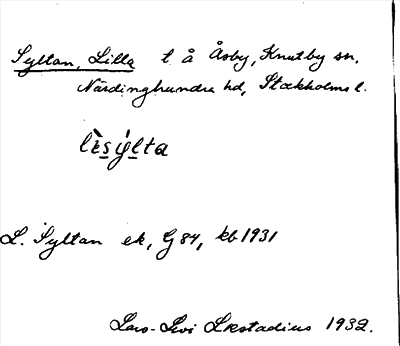 Syltan, Lilla t å Åsby, Knutby sn,
Närdinghundra hd, Stockholms l.
lìsýlta
L. Syltan ek, G 84, kb 1931
Lars-Levi Læstadius 1932.